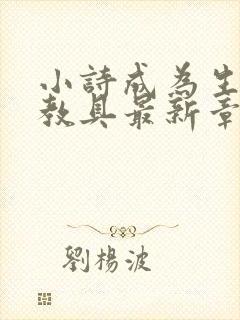 小詩成為生
教具最新章
劉楊波